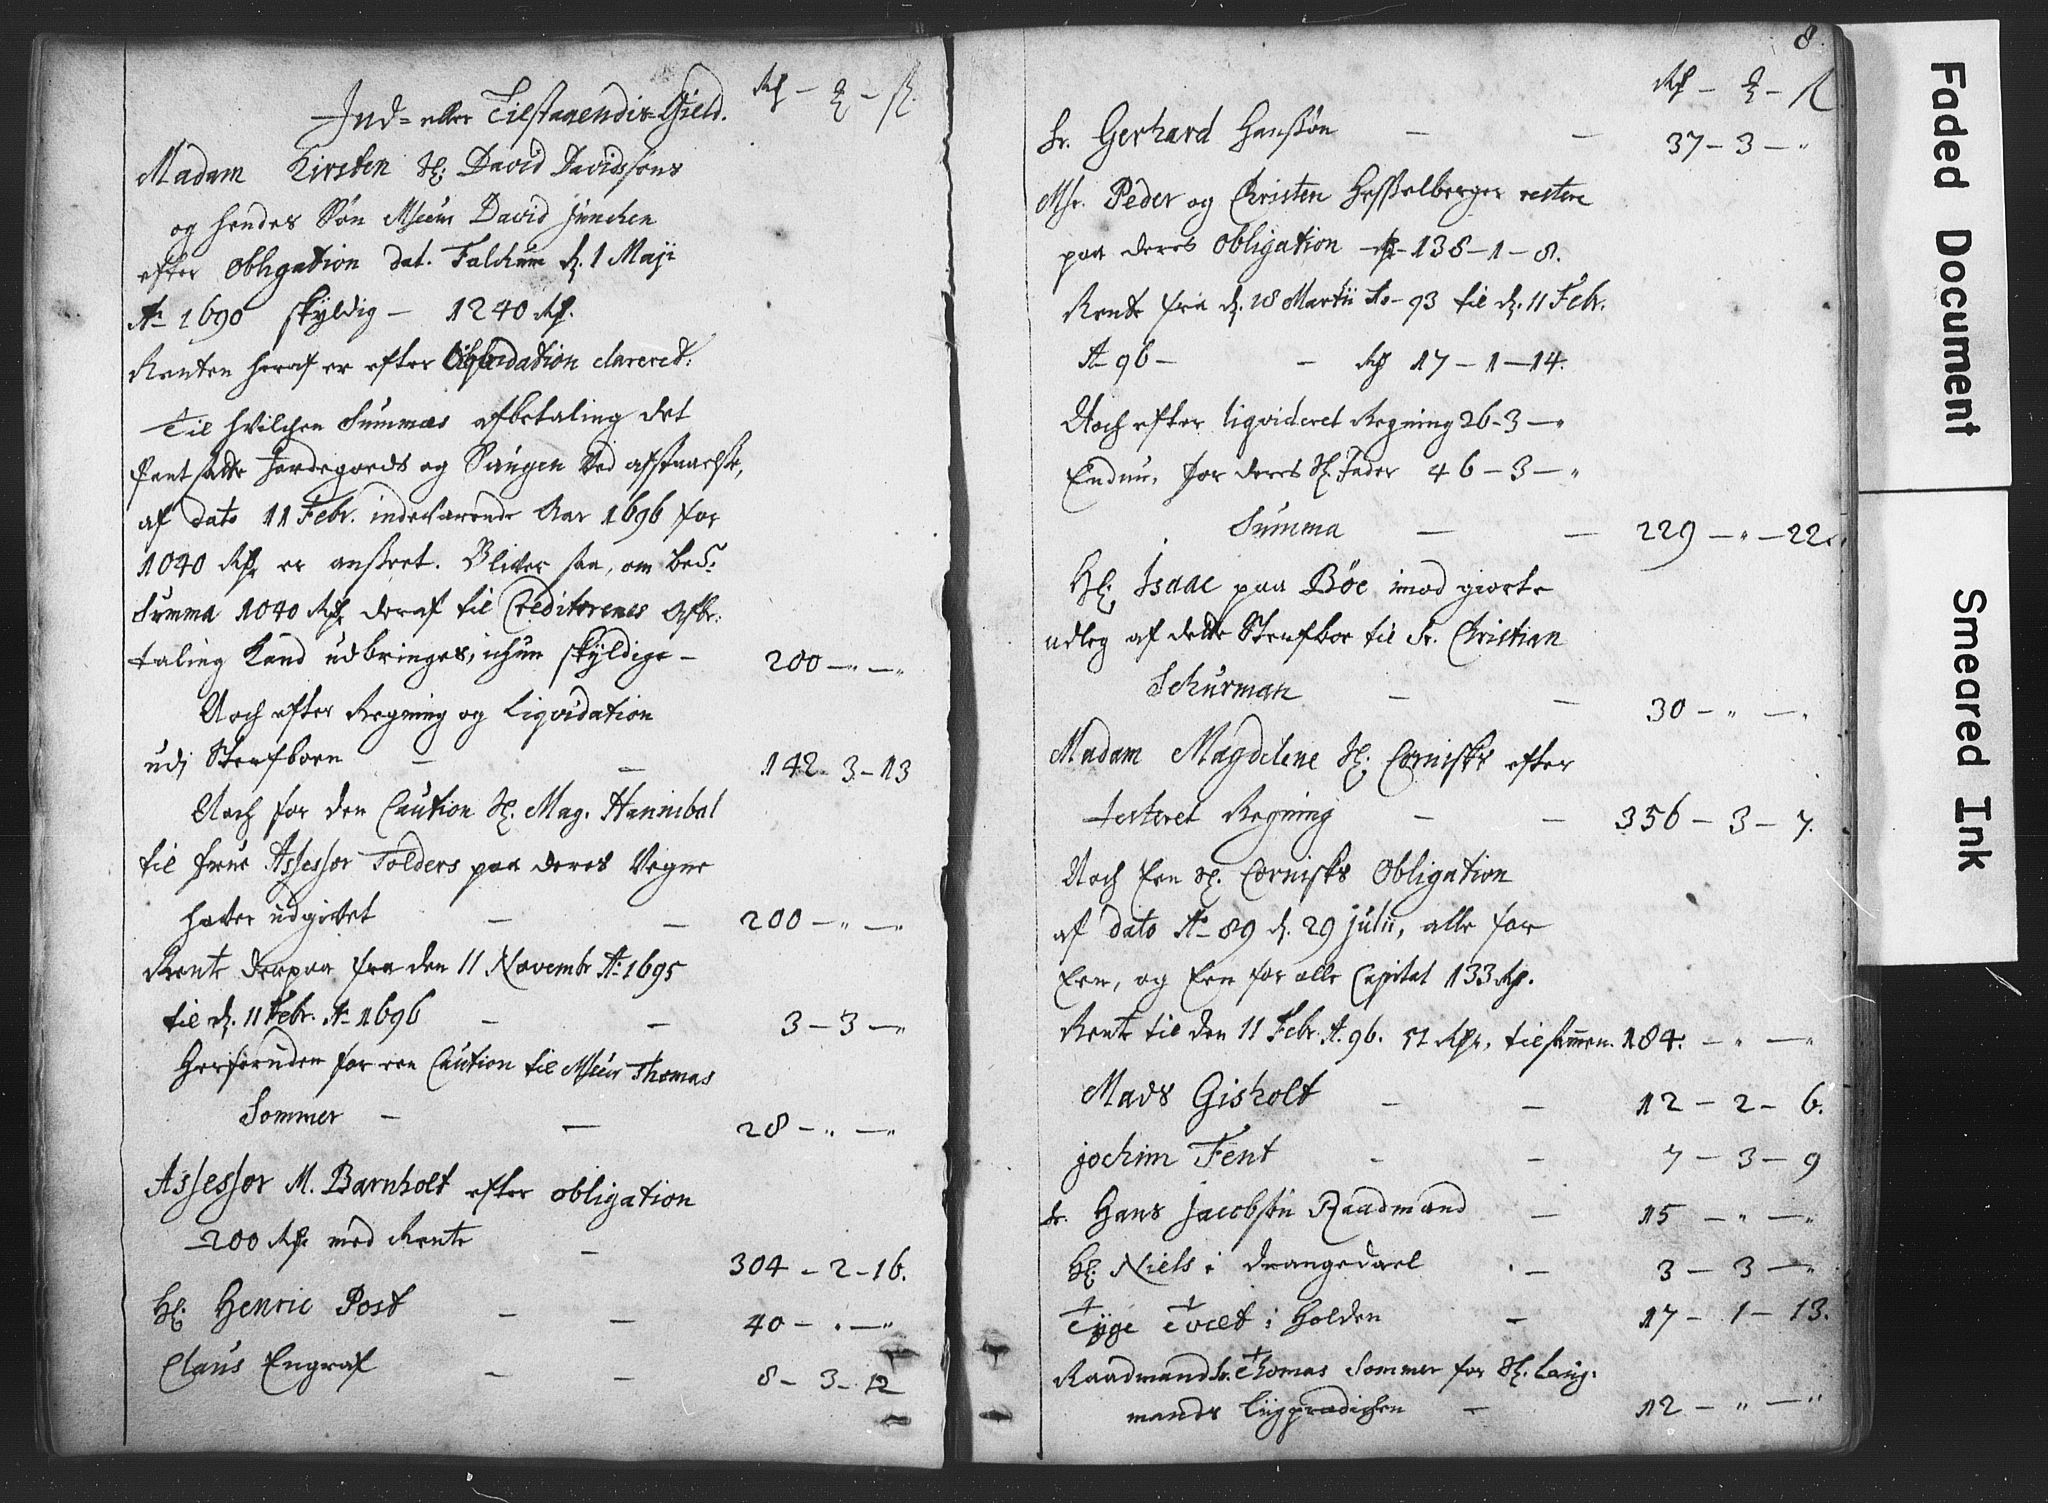 Ind- eller Tilstaaendis-Gield. Rd - ₰ - ß.
Madam Kirsten Sl: David Davidsøns
og hendes Søn Msieur David Jünchen
efter Obligation dat. Falchum d. 1 Maji
Ao 1690 skyldig - 1240 Rd.
Renten heraf er efter Liqvidation clareret.
Til hvilchen Summes afbetaling det
Pantsatte Jordegoeds og Saugen ved
af dato 11 Febr. indeværende Aar 1696 for
1040 Rdr er ansæet. Bliver saa, om bete
Summa 1040 Rdr deraf til Creditorenes Afbe-
taling kand udbringes, ichun skyldige - 200 - " - "
Noch efter Regning og Liqvidation
udj Sterfboen - - 142 - 3 - 13
Noch for den Caution Sl. Mag. Hannibal
til frue Assessor Tolders paa deres Vegne
hafver udgivet - - 200 - " - "
Rente derpaa fra den 11 Novembr Ao 1695
til d. 11 Febr. Ao 1696 - - 3 - 3 - "
Herforuden for een Caution til Msieur Thomas
Sommer - - 28 - " - "
Assessor M. Barnholt efter obligation
200 Rdr med Rente - 304 - 2 - 16.
Hl: Henric Post - - 40 - " - "
Claus Engraf - - 8 - 3 - 12
8.
Rd - ₰ - ß
Sr. Gerhard Hanssøn - - 37 - 3 - "
Msr. Peder og Christen Hesselberger restere
paa deres Obligation Rd 138 - 1 - 8.
Rente fra d. 18 Martii Ao 93 til d. 11 Febr.
Ao 96 - - Rd 17 - 1 - 14.
Noch efter liqvideret Regning 26 - 3 - "
Endnu, for deres Sl. Fader 46 - 3 - "
Summa - - 229 - " - 22.
Hl: Isaac paa Bøe imod giorte
udleg af dette Sterfboe til Sr. Christian
Schurman - - 30 - " - "
Madam Magdelene Sl: Cornisks efter
Regning - - 356 - 3 - 7.
Noch Een Sl. Cornisks Obligation
af dato Ao 89 d. 29 Julii, alle for
Een, og Een for alle Capital 133 Rd.
Rente til den 11 Febr. A. 96. 51 Rdr, tilsamen. 184. - " - "
Mads Gisholt - - 12 - 2 - 6.
Jochim Fent - - 7 - 3 - 9
Sr. Hans Jacobsøn Raadmand - 15 - " - "
Hl: Niels i Drangedael - 3 - 3 - "
Tyge Tvet i Holden - 17 - 1 - 13.
Raadmand Sr. Thomas Sommer for Sl. Laug-
mands Liigprædichen - 12 - " - "
Faded Document
Smeared Ink